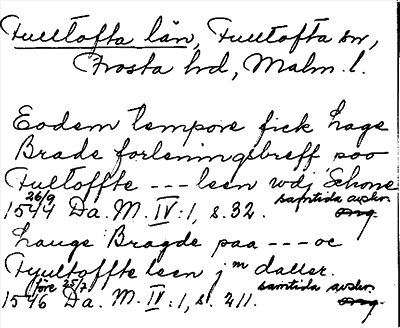 Fulltofta län, Fulltofta sn,
Frosta hd, Malm. l.
Eodem tempore fick Lage
Brade forleningsbreff poo
Fultoffte --- leen wdj Schone
26/9
1544 Da. M. IV:1, s. 32. samtida avskr.
Lauge Bragde paa --- oc
Fyultoffte leen jm daller.
före 25/7
1546 Da. M. IV:1, s. 211. samtida avskr.